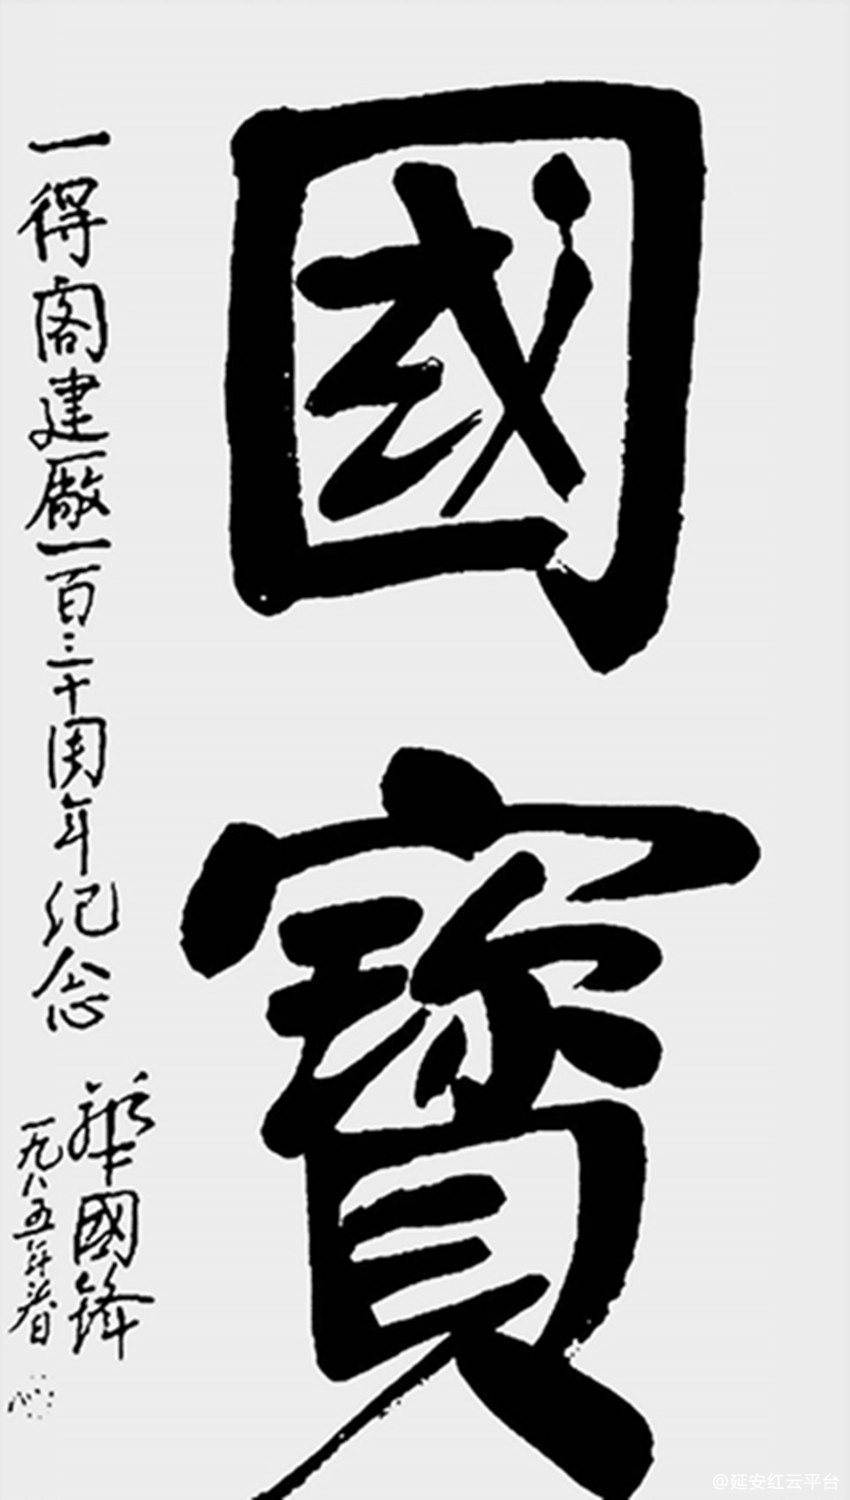 國寶
一得閣建廠一百二十周年纪念
華國鋒
一九八五年春
@延安红云平台